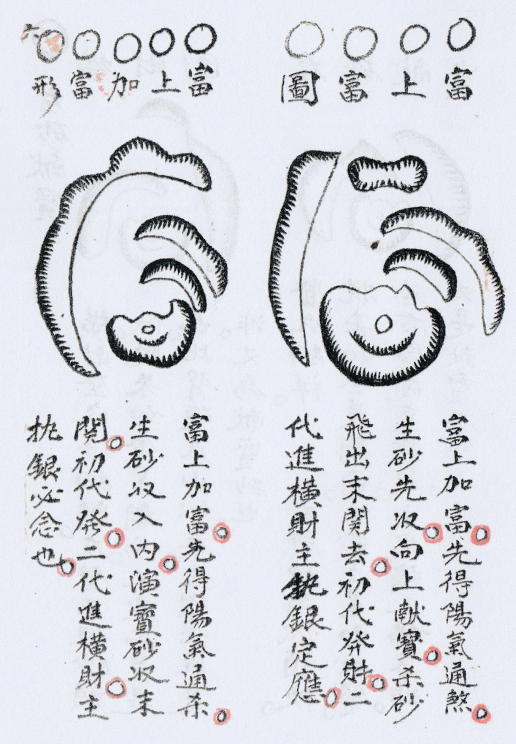 富上富圖
富上加富先得陽氣通煞
生砂先收向上献寶杀砂
飛出末関去初代発財二
代進橫財主執銀定應
六
富上加富形
富上加富先得陽氣通杀
生砂收入内演寶砂收末
関初代発二代進橫財主
执銀必念也